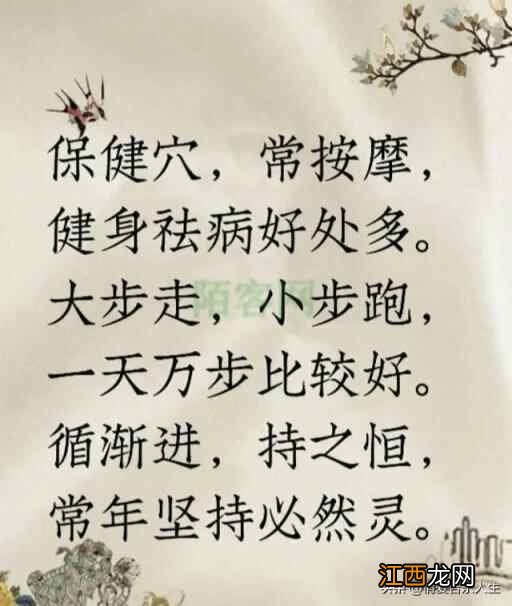 保健穴，常按摩，
健身祛病好处多。
陌客网
大步走，小步跑，
一天万步比较好。
循渐进，持之恒，
常年坚持必然灵。
江西龙网